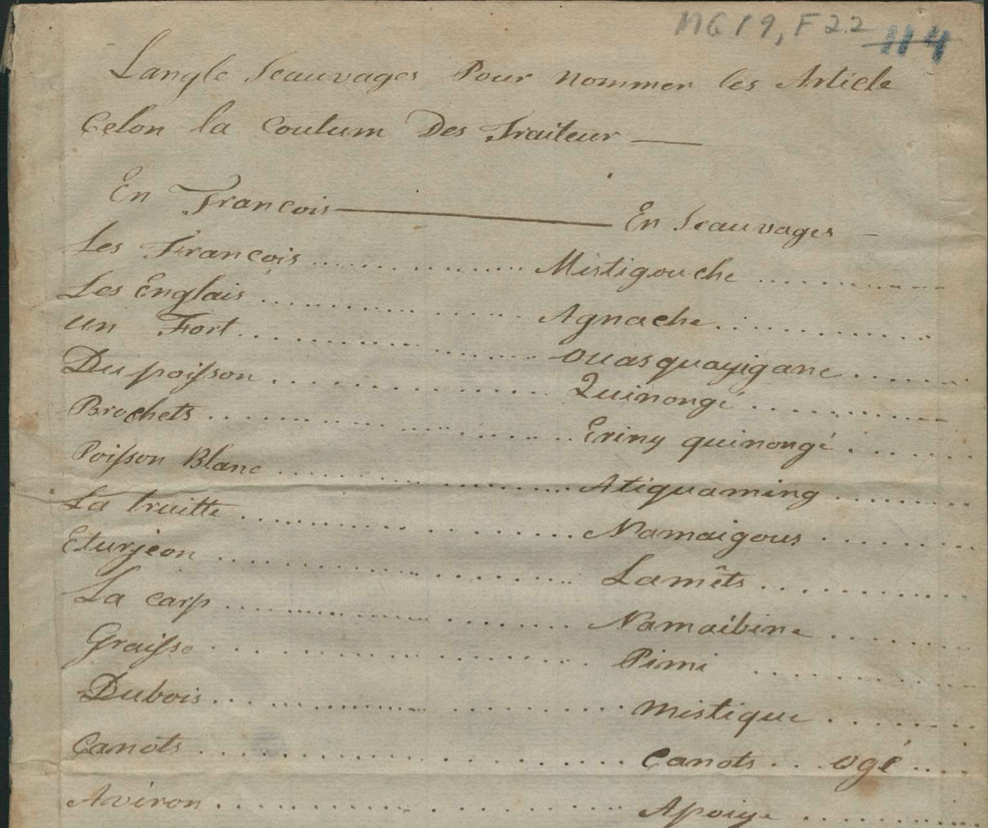 MG19, F22 114
Langle Seauvages Pour nommer les Article
Celon la Coutum Des Traiteur —
En François — En Seauvages —
Les François .......... Mistigouche ..........
Les Englais .......... Agnache ..........
un Fort .......... ouasquayigane ..........
Du poisson .......... Quinongé ..........
Brochets .......... Eriny quinongé ..........
Poisson Blanc .......... Atiquaming ..........
La truitte .......... Namaigous ..........
Eturjeon .......... Lamêts ..........
La carp .......... Namaibine ..........
Graisse .......... Pimi ..........
Dubois .......... mistique ..........
Canots .......... Canots .. ogé ....
Aviron .......... Apoiye ..........